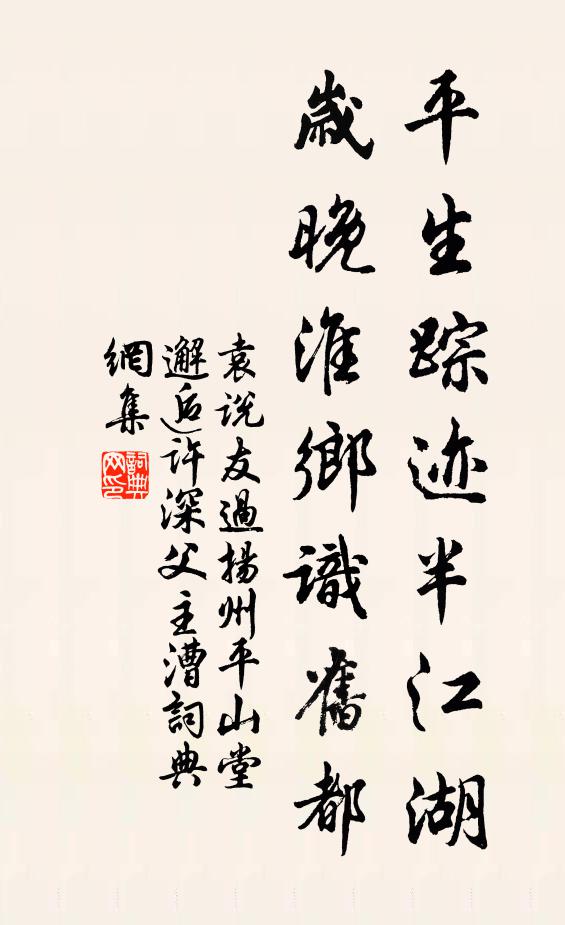 平生踪迹半江湖
歲晚淮鄉識舊都
袁説友過揚州平山堂
邂逅許深父主漕詞典
網集
詞典網印